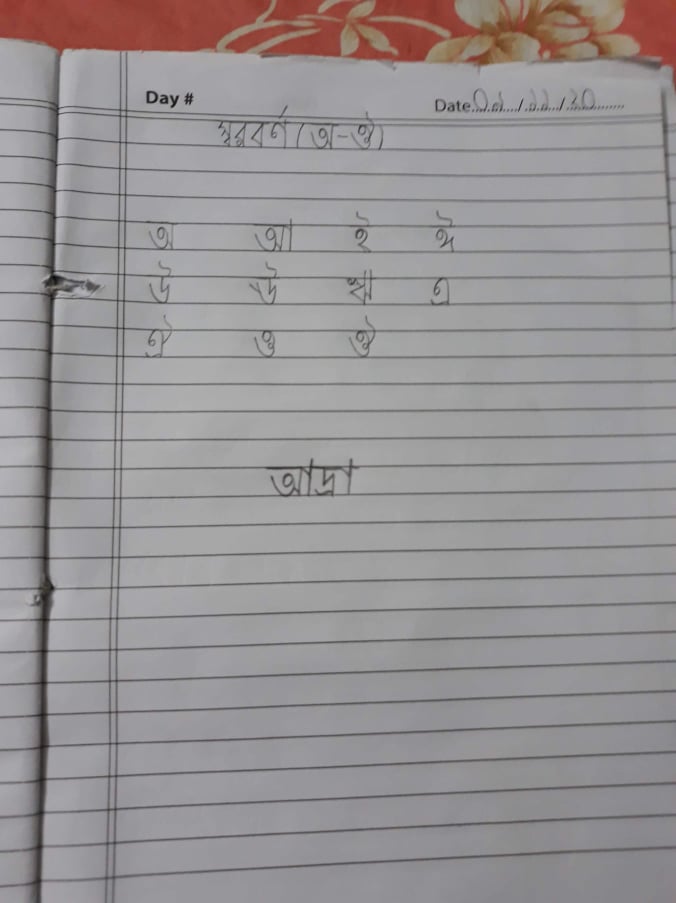 Day #
Date 01/11/20
স্বরবর্ণ (অ-ঔ)
অ আ ই ঈ
উ ঊ ঋ এ
ঐ ও ঔ
আদ্রা